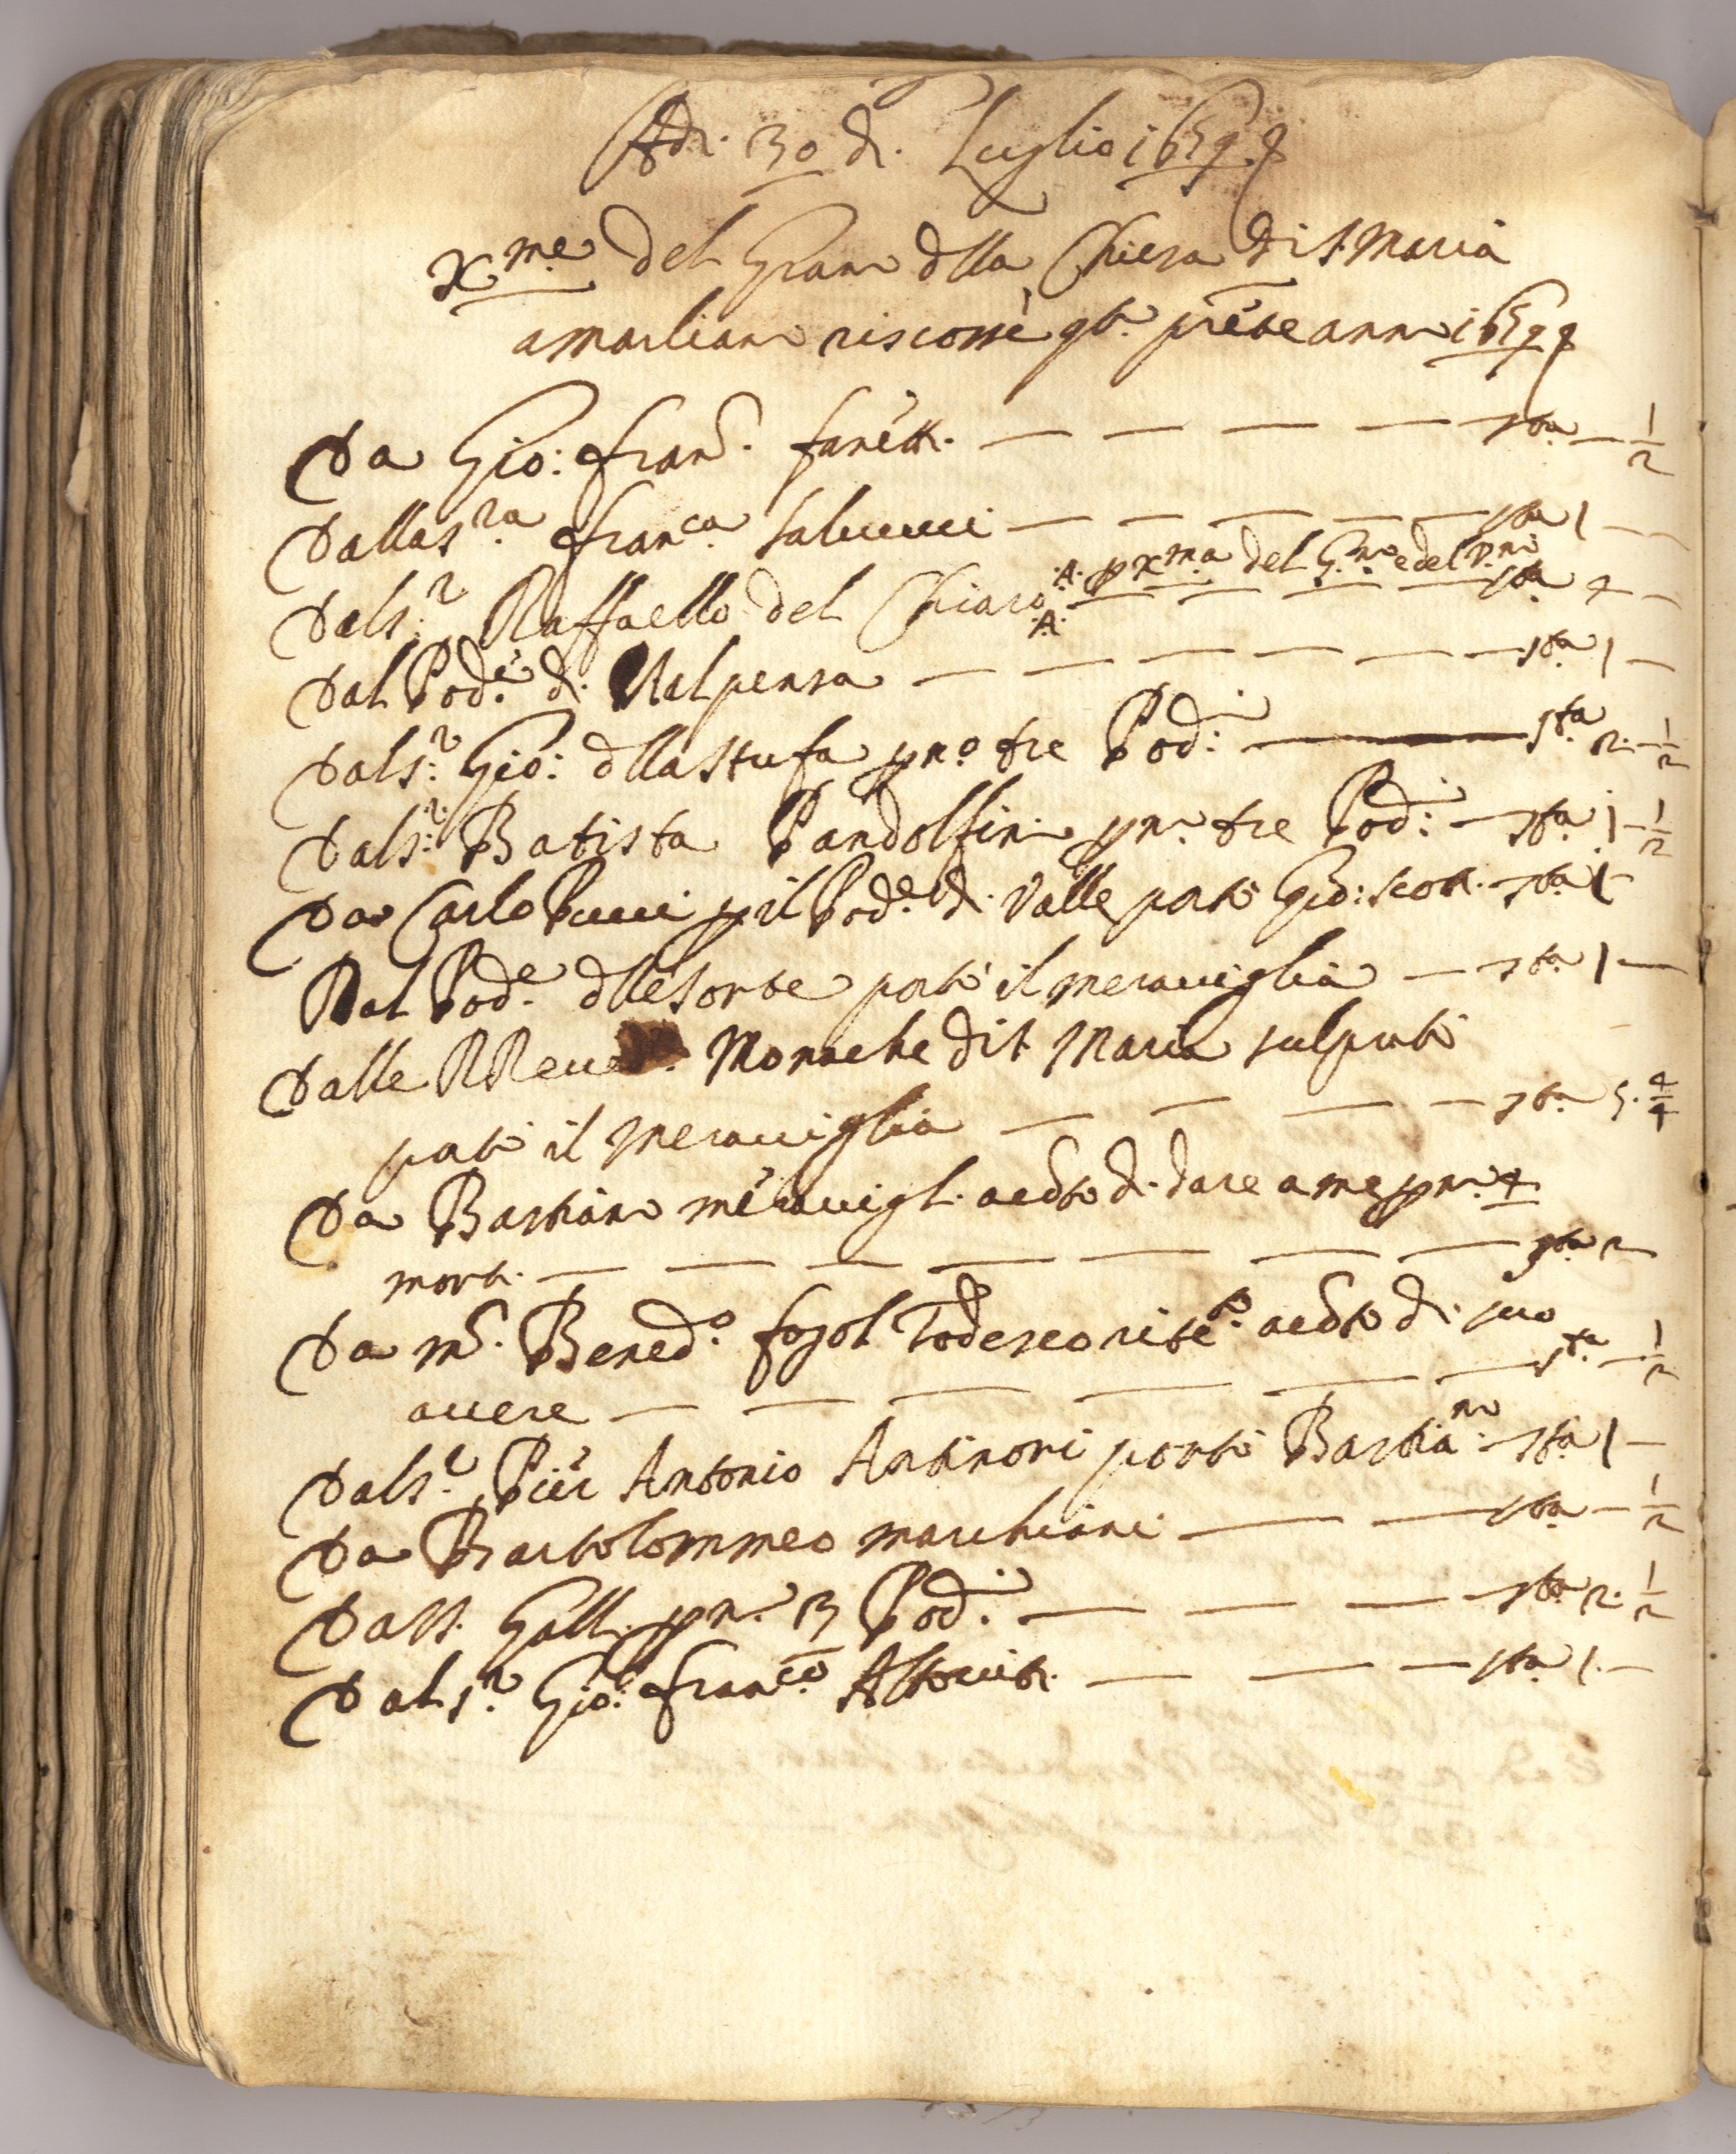 Adi. 30 di. Luglio 1659
Xme del Grano dlla Chiesa di S. Maria
a Marliano riscosse qto. prẽte anno 1659
Da Gio: Franc. fanetti. — — — — sta — 1/2
Dalla S.ra Fran.ca Salvucci — — — — sta 1 —
Dal S.r Raffaello del Chiaro .A. p Xma del G.no e del V.no sta 4 —
.A.
Dal Pod.e di. Malpensa — — — — sta 1 —
Dal S.r Gio: dlla Stufa pno tre Pod.i — sta 2. 1/2
Dal S.r Batista Pandolfini pno tre Pod.i — sta 1 — 1/2
Da Carlo Pucci p il Pod.e di Valle portò Gio: Scotti. — sta 1 —
Dal Pod.e dlle Sorbe portò il meraviglia — sta 1 —
Dalle RReve. Monache di S. Maria sul prato
portò il Meraviglia — — — — sta 5. 4/4
Da Bastiano meravigl. acdto di. dare a me pno 4
mort. — — — — sta 2
Da m. Bened.o fogol Todesco acdto di. suo
avere — — — — sta — 1/2
Dal S.r Pier Antonio Antinori portò Bastia.no — sta 1 —
Da Bartolommeo marchiani — — sta — 1/2
Da SS. Galli. pno 3 Pod.i — — — sta 2. 1/2
Dal S.r Gio: Fran.co Altoviti. — — — sta 1. —